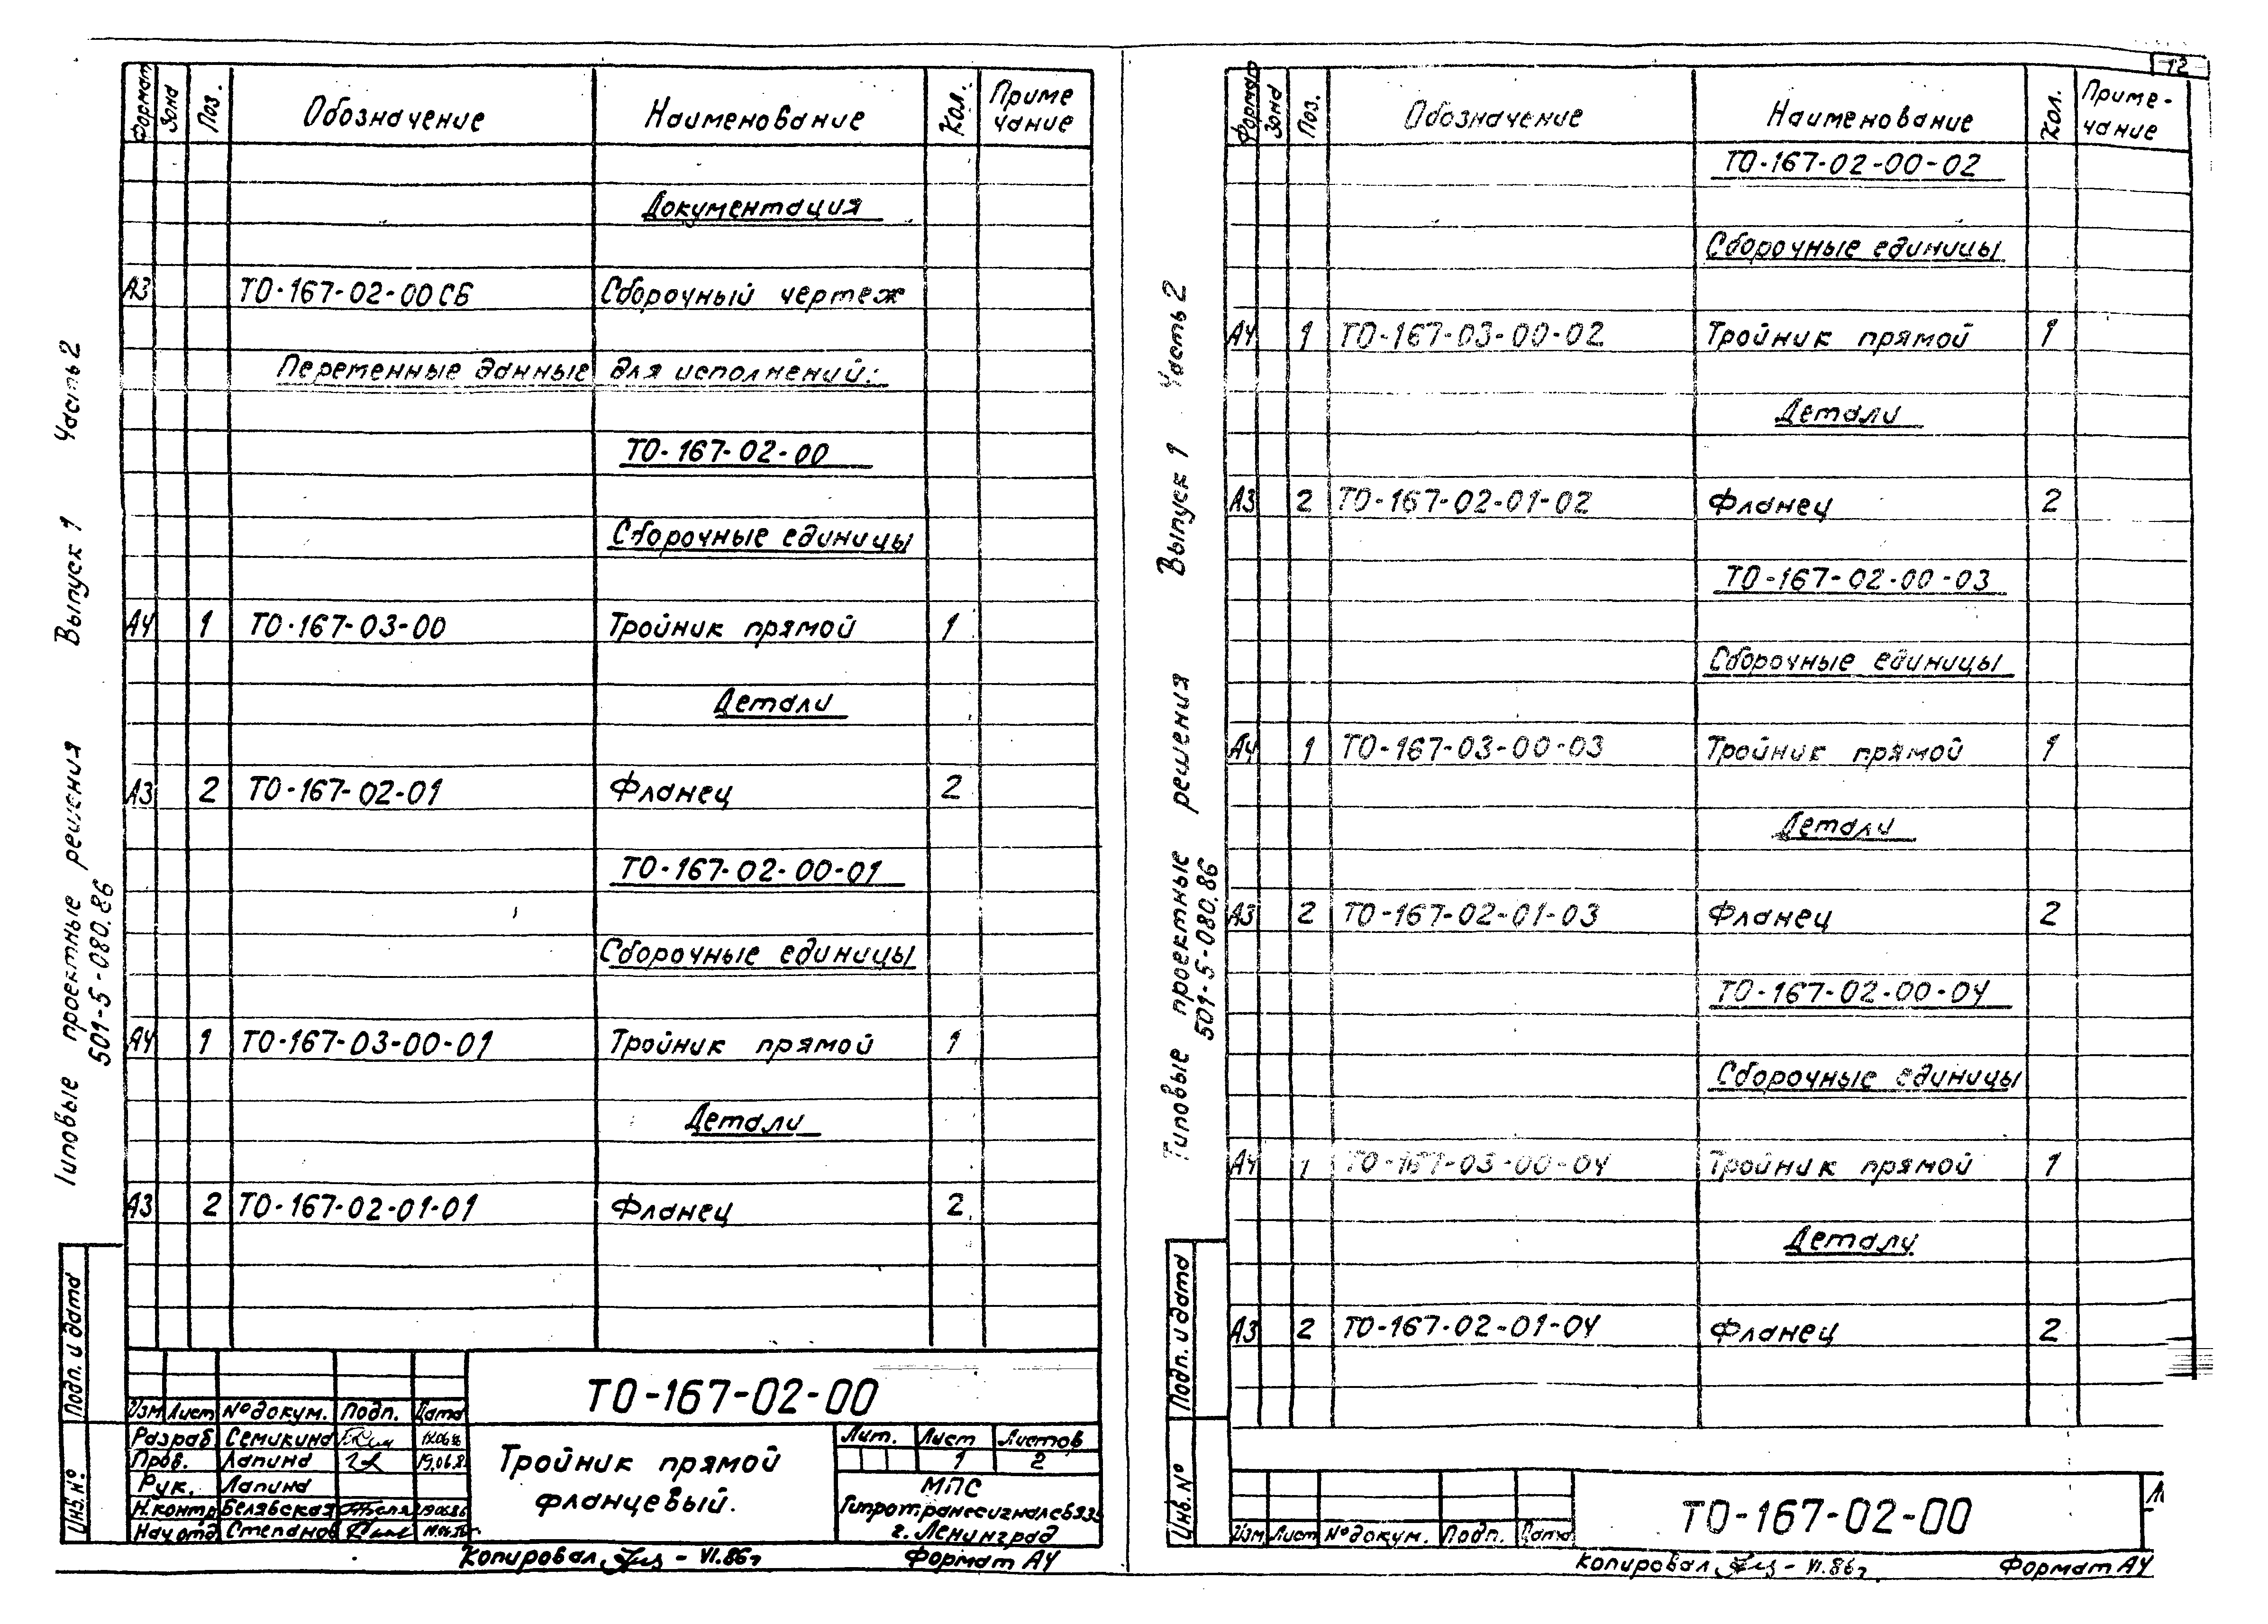 Формат Зона Поз. Обозначение Наименование Кол. Приме чание
Документация
А3 ТО-167-02-00СБ Сборочный чертеж
Переменные данные для исполнений:
ТО-167-02-00
Сборочные единицы
А4 1 ТО-167-03-00 Тройник прямой 1
Детали
А3 2 ТО-167-02-01 Фланец 2
ТО-167-02-00-01
Сборочные единицы
А4 1 ТО-167-03-00-01 Тройник прямой 1
Детали
А3 2 ТО-167-02-01-01 Фланец 2
Типовые проектные решения Выпуск 1 Часть 2
501-5-080.86
Подп. и дата
Инв. №
ТО-167-02-00
Изм Лист № докум. Подп. Дата
Разраб Семикина
Пров. Лапина 19.06.8
Рук. Лапина
Н.контр Белявская
Нач отд Степанов
Тройник прямой
фланцевый.
Лит. Лист Листов
1 2
МПС
Гипротранссигналсвязь
г. Ленинград
Копировал - VI.86г
Формат А4
12
Формат Зона Поз. Обозначение Наименование Кол. Приме-
чание
ТО-167-02-00-02
Сборочные единицы
А4 1 ТО-167-03-00-02 Тройник прямой 1
Детали
А3 2 ТО-167-02-01-02 Фланец 2
ТО-167-02-00-03
Сборочные единицы
А4 1 ТО-167-03-00-03 Тройник прямой 1
Детали
А3 2 ТО-167-02-01-03 Фланец 2
ТО-167-02-00-04
Сборочные единицы
А4 1 ТО-167-03-00-04 Тройник прямой 1
Детали
А3 2 ТО-167-02-01-04 Фланец 2
Типовые проектные решения Выпуск 1 Часть 2
501-5-080.86
Подп. и дата
Инв. №
Изм Лист № докум. Подп. Дата
ТО-167-02-00
Копировал - VI.86г.
Формат А4